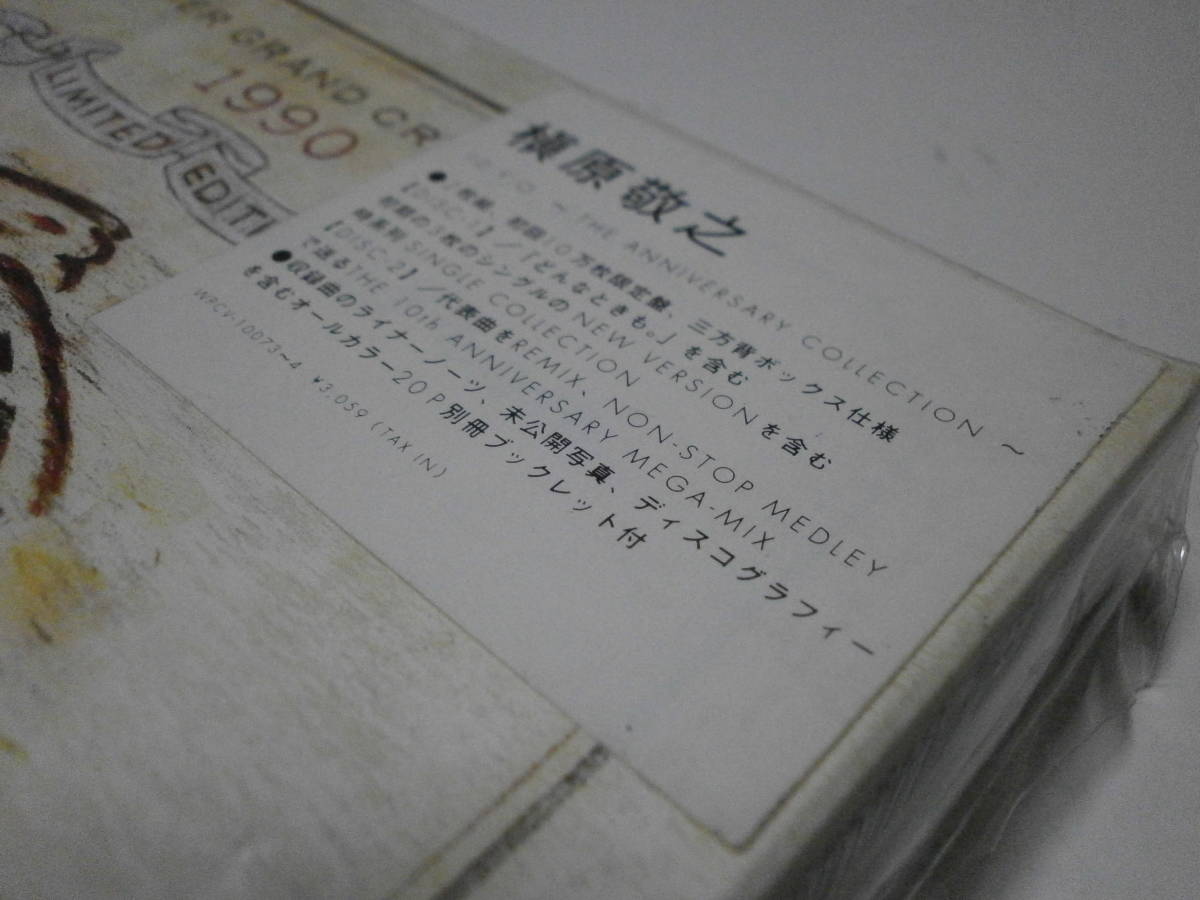 ER GRAND CR
1990
LIMITED EDITI
槇原敬之
10.Y.O. ~ THE ANNIVERSARY COLLECTION ~
●2枚組、初回10万枚限定盤、三方背ボックス仕様
【DISC-1】/「どんなときも。」を含む
初期の3枚のシングルのNEW VERSIONを含む
時系列SINGLE COLLECTION
【DISC-2】/代表曲をREMIX、NON-STOP MEDLEY
で送るTHE 10th ANNIVERSARY MEGA-MIX
●収録曲のライナーノーツ、未公開写真、ディスコグラフィー
を含むオールカラー20P別冊ブックレット付
WPCV-10073~4 ¥3,059 (TAX IN)